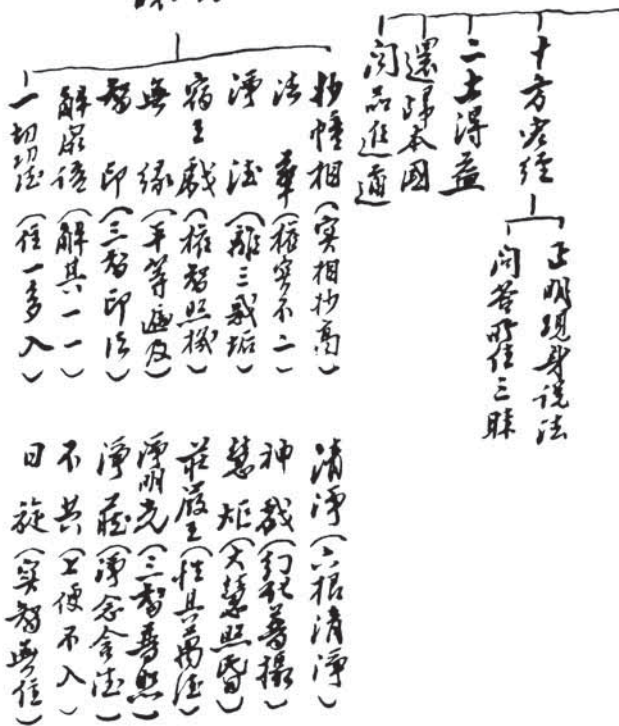 十方弘經
正明現身說法
問答所住三昧
二土得益
還歸本國
聞品進道
妙幢相（實相妙高）
法華（權實不二）
淨德（離三惑垢）
宿王戲（權智照機）
無緣（平等遍及）
智印（三智印法）
解眾語（解其一一）
一切功德（住一多入）
清淨（六根清淨）
神戲（幻化普攝）
慧炬（大慧照昏）
莊嚴王（性具萬德）
淨明光（三智普照）
淨藏（淨念含德）
不共（二便不入）
日旋（實智無住）